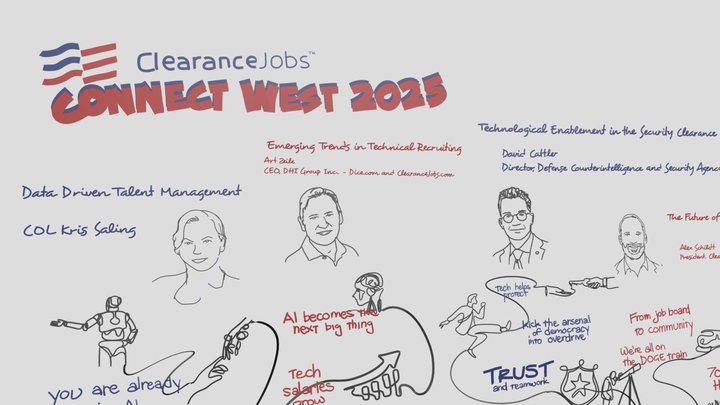 ClearanceJobs™
CONNECT WEST 2025
Data Driven Talent Management
COL Kris Saling
Emerging Trends in Technical Recruiting
Art Zeile
CEO, DHI Group Inc. - Dice.com and ClearanceJobs.com
Technological Enablement in the Security Clearance
David Cattler
Director, Defense Counterintelligence and Security Agency
The Future of
Alex Schildt
President, Clea
you are already
AI becomes the
next big thing
Tech
salaries
grow
Tech helps
protect
kick the arsenal
of democracy
into overdrive!
TRUST
and teamwork
From job board
to community
We're all on
the DOGE train